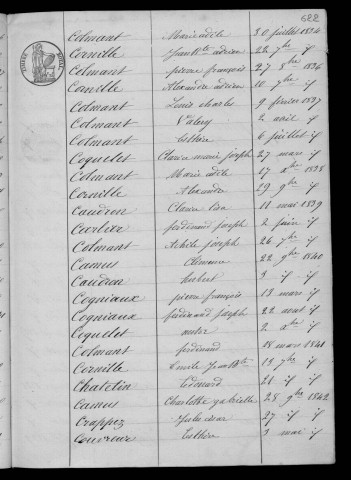 622
TIMBRE ROYAL
Colmant Marie adèle 20 juillet 1834
Cornille Jean Bte adrien 22 7bre id
Colmant pierre françois 27 8bre 1836
Cornille Alexandre adrien 10 7bre id
Colmant Louis charles 9 février 1837
Colmant Valery 2 avril id
Colmant Esther 6 juillet id
Coquelet Clarice marie joseph 27 mars id
Colmant Marie adèle 17 Xbre 1838
Cornille Alexandre 29 9bre id
Caudron Clarice lisa 11 mai 1839
Carlier ferdinand joseph 2 juin id
Colmant Achile joseph 26 7bre id
Camus Clemence 22 9bre 1840
Caudron hubert 3 id id
Cogniaux pierre françois 13 mars id
Cogniaux ferdinand joseph 22 aout id
Coquelet andre 2 Xbre id
Colmant ferdinand 18 mars 1841
Cornille Emile Jean Bte 19 7bre id
Chatelin Edouard 21 id id
Camus Charlotte gabrielle 28 9bre 1842
Crappez Jules cesar 27 id id
Couvreur Esther 3 mai id